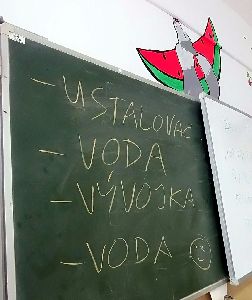 - USTALOVAČ
- VODA
- VÝVOJKA
- VODA